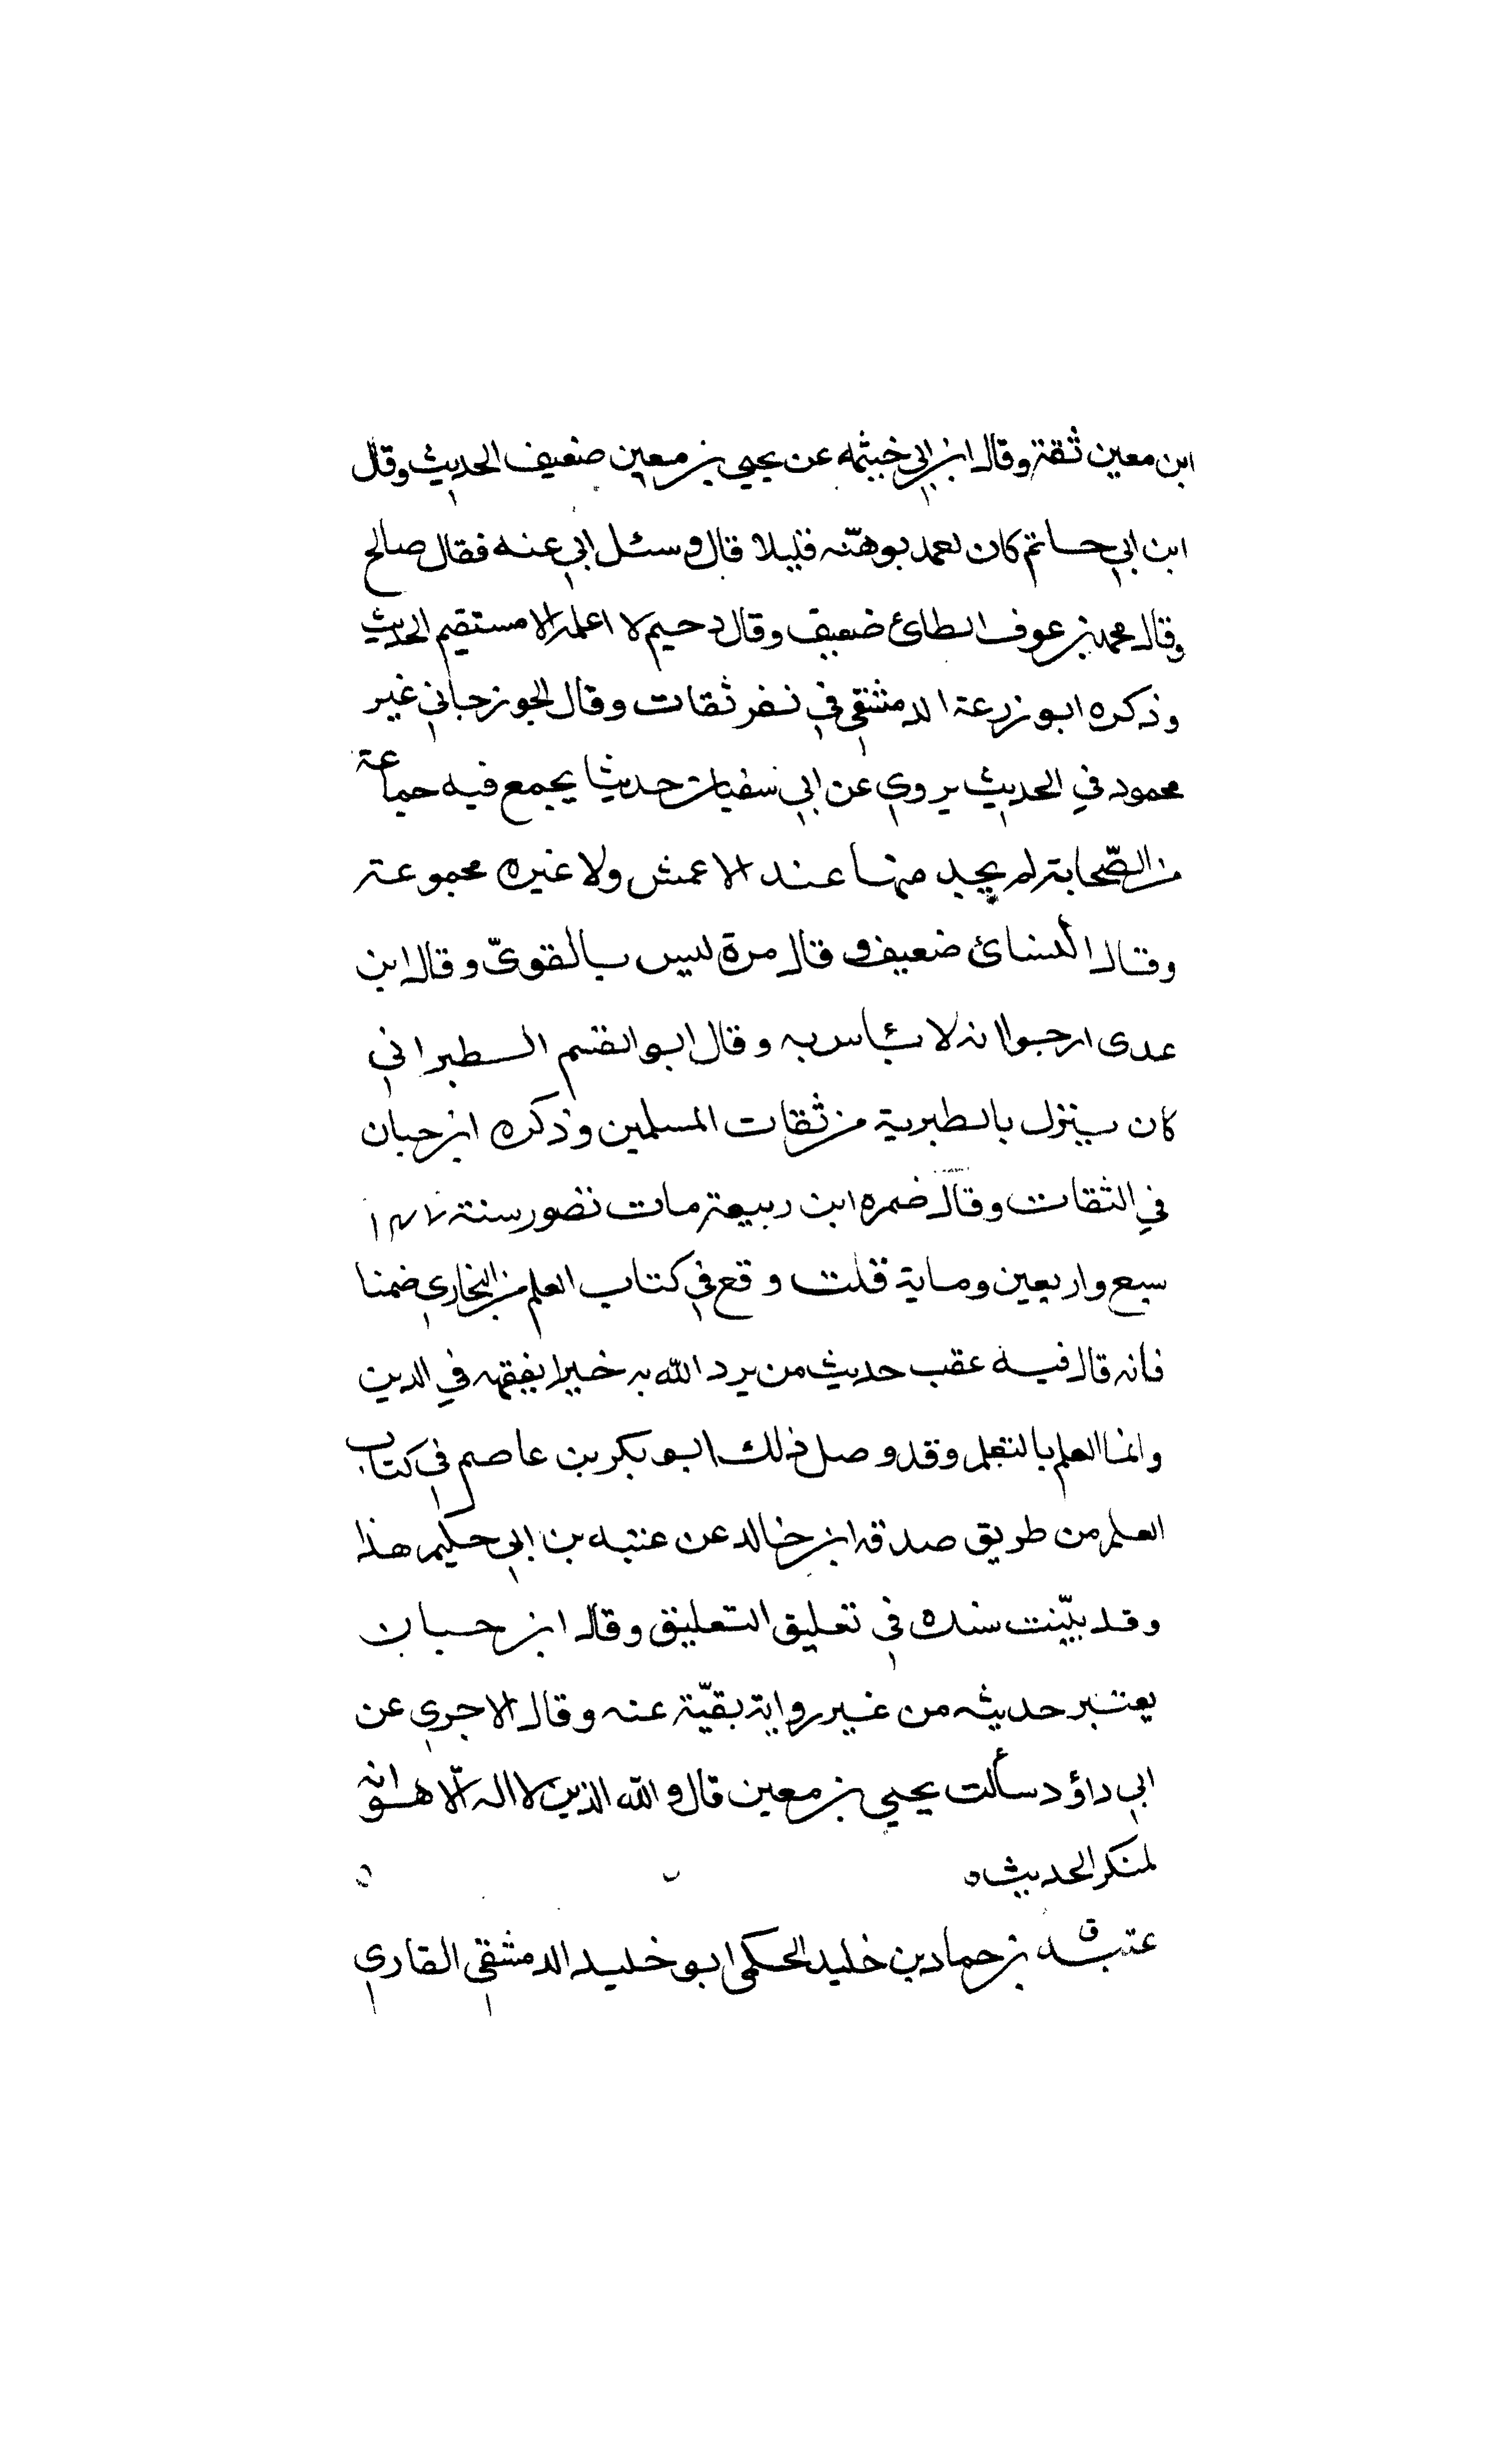 ابن معين ثقة وقال ابن ابي خيثمه عن يحيي بن معين ضعيف الحديث وقال
ابن ابي حاتم كان احمد يوهّنه قليلا قال وسئل ابي عنه فقال صالح
وقال محمد بن عوف الطائ ضعيف وقال دحيم لا اعلمه الا مستقيم الحديث
وذكره ابو زرعة الدمشقي في نفر ثقات وقال الجوزجاني غير
محمود في الحديث يروي عن ابي سفيان حديثا يجمع فيه جماعة
من الصّحابة لم يجد منها عند الاعمش ولا غيره مجموعة
وقال النسائ ضعيف وقال مرة ليس بالقويّ وقال ابن
عدى ارجوا انه لا بئاس به وقال ابو القسم الطبراني
كان ينزل بالطبرية من ثقات المسلمين وذكره ابن حبان
في الثقات وقال ضمره ابن ربيعة مات نصور سنة ١٤٧
سبع واربعين وماية قلت وقع في كتاب العلم من البخاري ضمنا
فانه قال فيه عقب حديث من يرد الله به خيرا يفقهه في الدين
وانما العلم بالتعلم وقد وصل ذلك ابو بكر بن عاصم في كتاب
العلم من طريق صدقه ابن خالد عن عتبه بن ابي حكيم هذا
وقد بيّنت سنده في تعليق التعليق وقال ابن حبان
يعتبر حديثه من غير رواية بقيّة عنه وقال الاجري عن
ابي داؤد سألت يحيي بن معين قال والله الذين لا اله الّا هو انه
لمنكر الحديث ه
عتبة بن حماد بن خليد الحكمى ابو خليد الدمشقي القاري